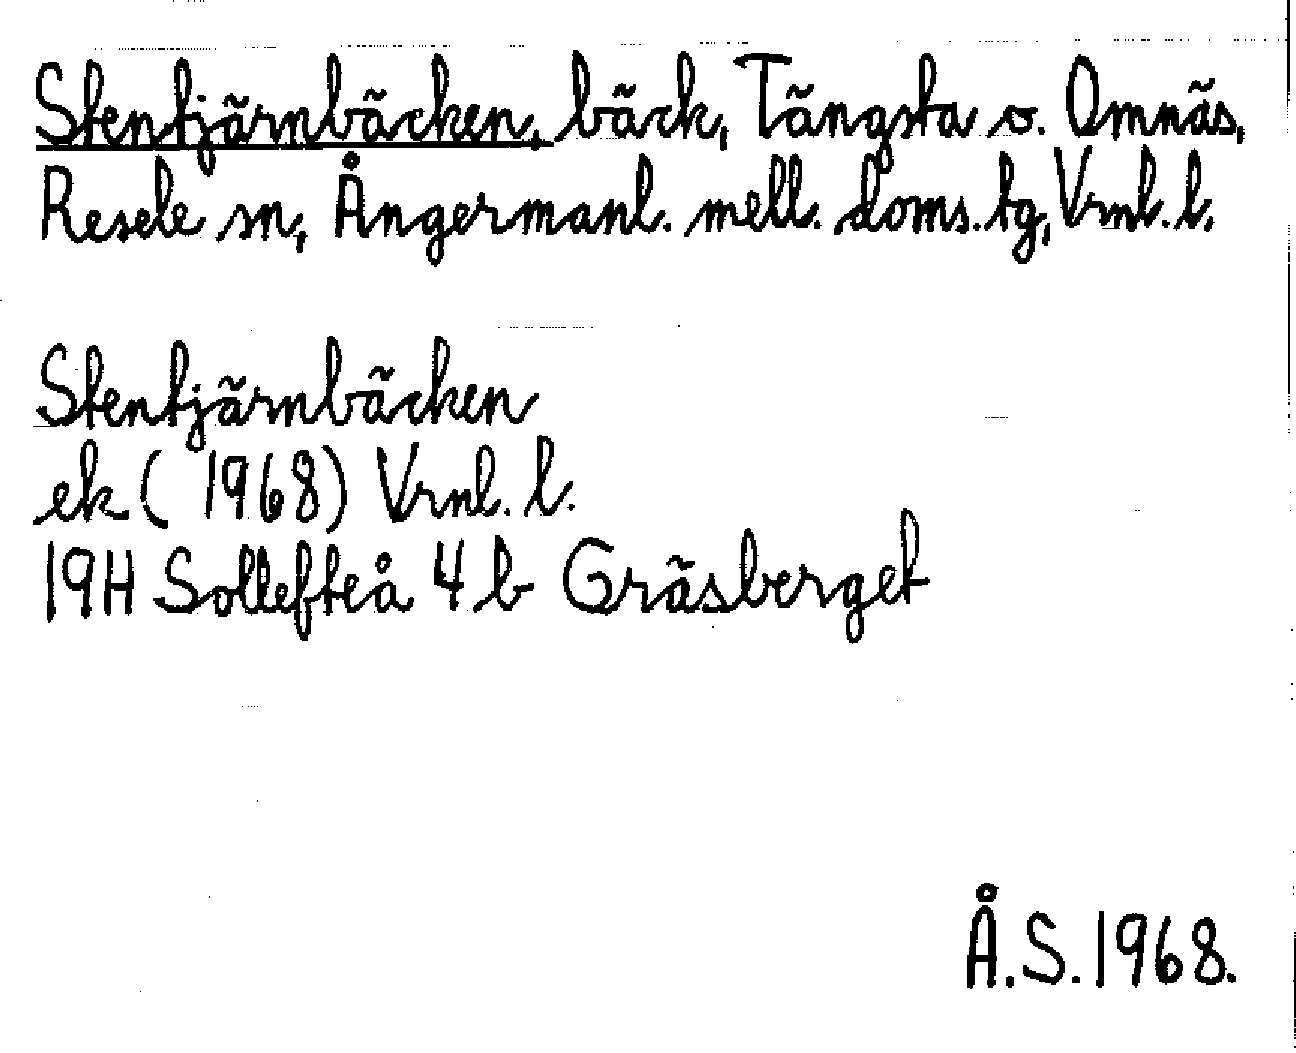 Stentjärnbäcken, bäck, Tängsta o. Omnäs,
Resele sn, Ångermanl. mell. doms. tg, Vrnl. l.
Stentjärnbäcken
ek (1968) Vrnl. l.
19H Sollefteå 4 b Gräsberget
Å.S. 1968.